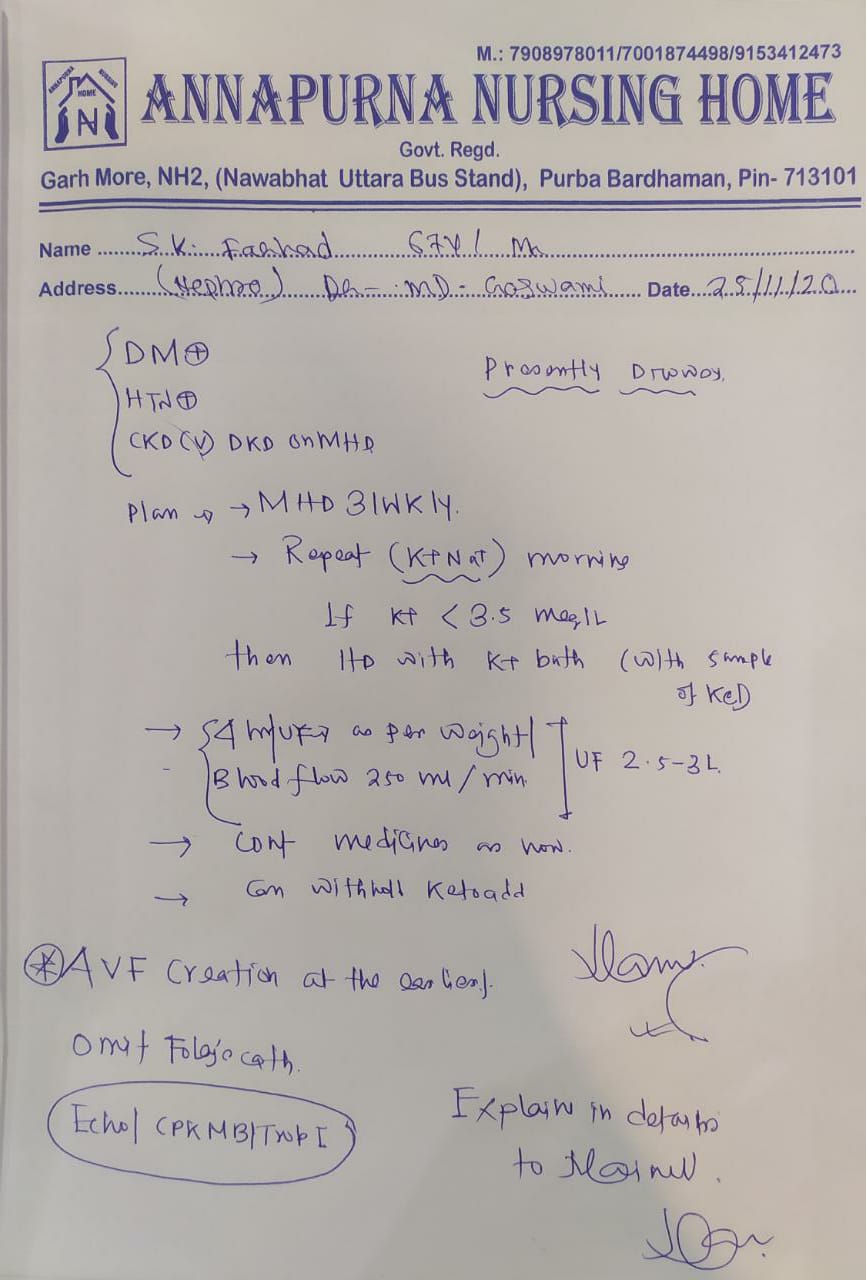 M.: 7908978011/7001874498/9153412473
ANNAPURNA NURSING HOME
HOME
N
Govt. Regd.
Garh More, NH2, (Nawabhat Uttara Bus Stand), Purba Bardhaman, Pin- 713101
Name S.K. Farhad 67Y/ M
Address (Nephro) Dr - MD - Goswami Date 25/11/20
DM⊕
Presently Drowsy.
HTN⊕
CKD (V) DKD on MHD
Plan → MHD 3/WKly.
→ Repeat (K+Na+) morning
If K+ < 3.5 meq/L
then HD with K+ bath (with sample
of KCl)
→ as per weight
Blood flow 250 ml/min
UF 2.5-3L
→ Cont medicines as now.
→ Can withhold Ketoadd
* AVF Creation at the earliest.
Omit Foley's cath.
Echo/ CPKMB/Trop I
Explain in details
to